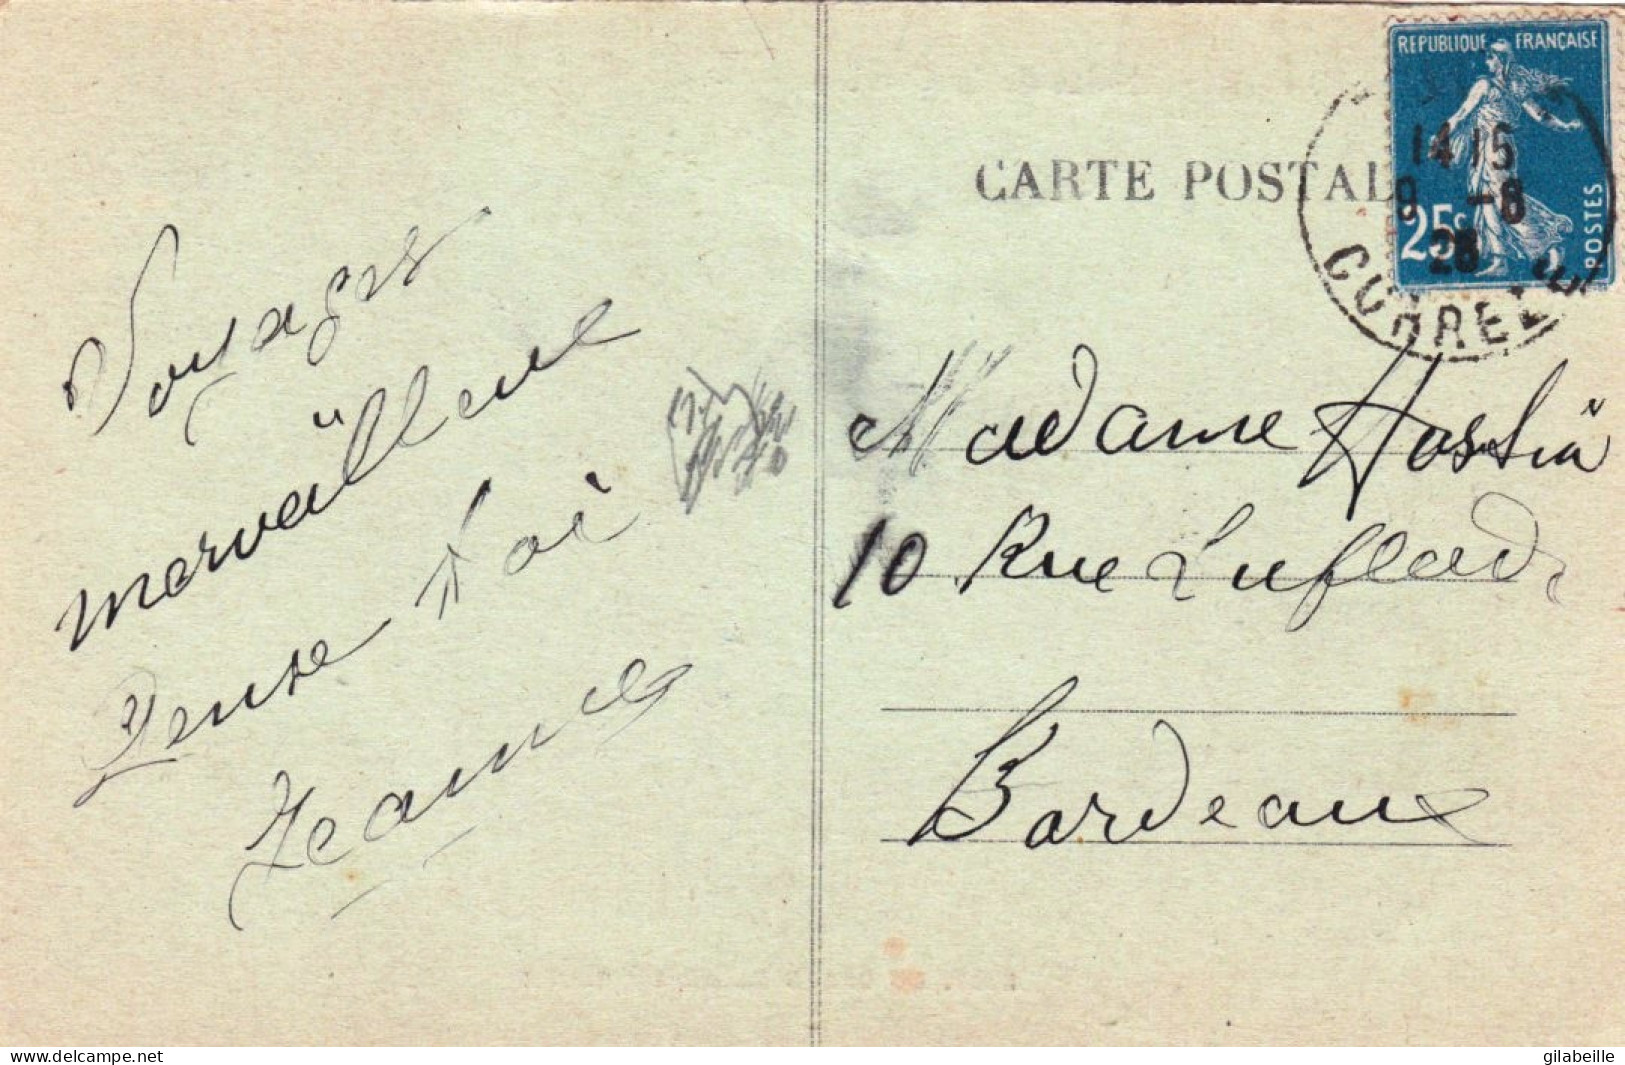 Voyages
merveilleux
Pense à toi
Jeanne
CARTE POSTALE
REPUBLIQUE FRANÇAISE
25c
POSTES
14 15
9 -8
26
CORREZE
Madame
10 Rue
Bordeaux
www.delcampe.net
gilabeille